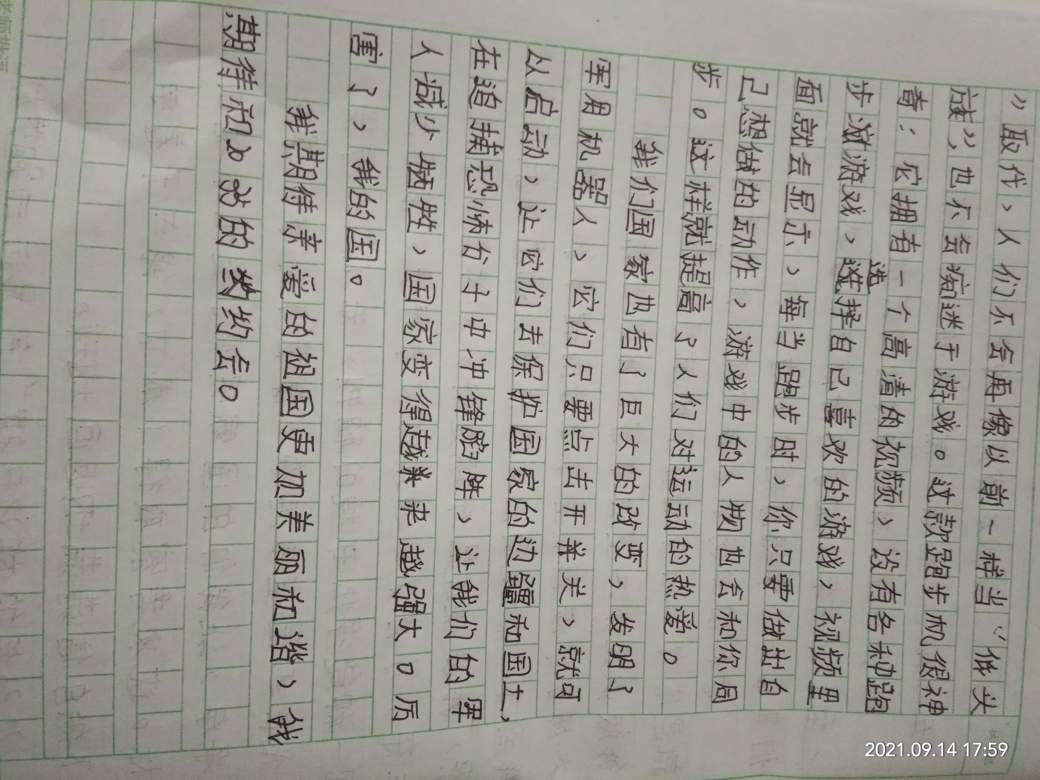 ”取代，人们不会再像以前一样当“低头
族”，也不会痴迷于游戏。这款跑步机很神
奇：它拥有一个高清的视频，设有各种跑
步游戏，选择自己喜欢的游戏，视频里
面就会显示，每当跑步时，你只要做出自
己想做的动作，游戏中的人物也会和你同
步。这样就提高了人们对运动的热爱。
我们国家也有了巨大的改变，发明了
军用机器人，它们只要点击开关，就可
以启动，让它们去保护国家的边疆和国土，
在追捕恐怖份子中冲锋陷阵，让我们的军
人减少牺牲，国家变得越来越强大。厉
害了，我的国。
我期待亲爱的祖国更加美丽和谐，我
期待和20 的约会。
2021.09.14 17:59